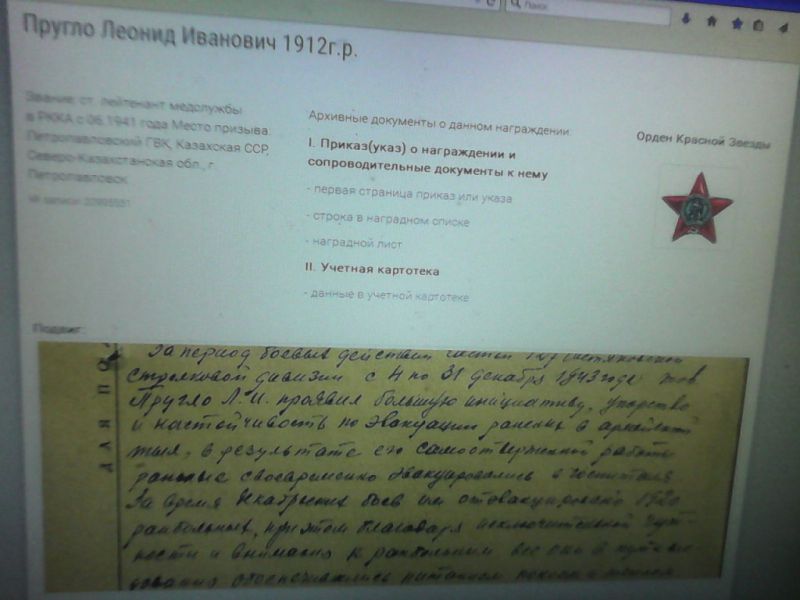 Поиск
Пругло Леонид Иванович 1912г.р.
Звание: ст. лейтенант медслужбы
в РККА с 06.1941 года Место призыва:
Петропавловский ГВК, Казахская ССР,
Северо-Казахстанская обл., г.
Петропавловск
№ записи:
Архивные документы о данном награждении:
I. Приказ(указ) о награждении и
сопроводительные документы к нему
- первая страница приказ или указа
- строка в наградном списке
- наградной лист
II. Учетная картотека
- данные в учетной картотеке
Орден Красной Звезды
Подвиг:
За период боевых действий частей
стрелковой дивизии с 4 по 31 декабря 1943 года тов.
Пругло Л.И. проявил большую инициативу, упорство
и настойчивость по эвакуации раненых в
в результате его самоотверженной работы
раненые своевременно эвакуировались в госпиталя
За время декабрьских боев им отэвакуировано 1920
ранбольных, при этом благодаря исключительной
и внимания к ранбольным все они в пути
обеспечивались питанием